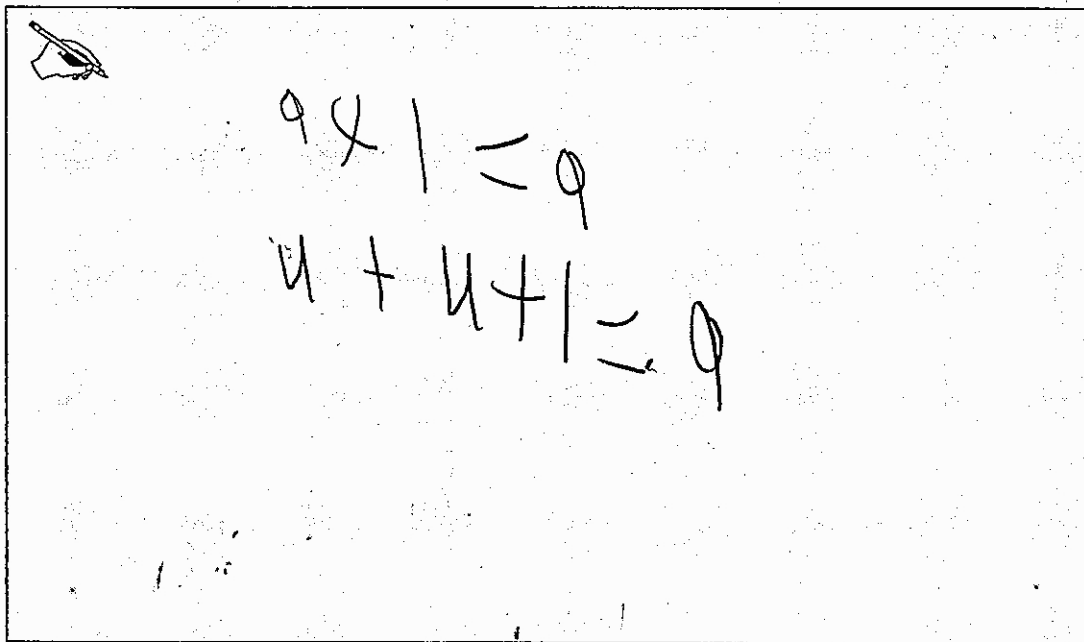 9 x 1 = 9
4 + 4 + 1 = 9